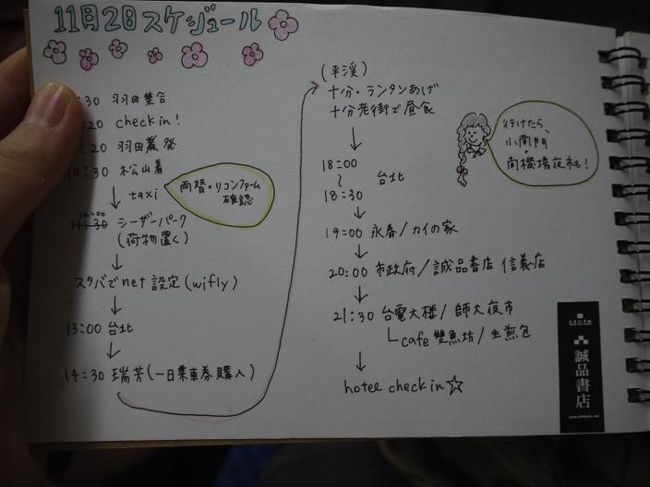 11月2日スケジュール
:30 羽田集合
:20 check in!
:20 羽田→発
10:30 松山着
taxi
両替・リコンファーム
確認
シーザーパーク
(荷物置く)
スタバでnet設定(wifly)
13:00 台北
14:30 瑞芳(一日乗車券購入)
(平渓)
十分・ランタンあげ
十分老街で昼食
18:00
~
18:30
台北
19:00 永春/カイの家
20:00 市政府/誠品書店 信義店
21:30 台電大楼/師大夜市
cafe 雙魚坊/生煎包
hotel check in☆
行けたら、
小南門
・南機場夜市も!
誠品書店